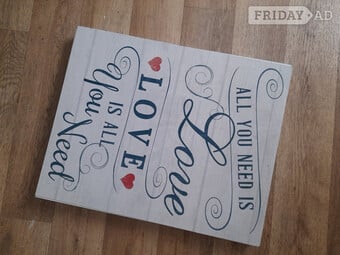 FRIDAY-AD
ALL YOU NEED IS
Love
LOVE
IS ALL
You Need